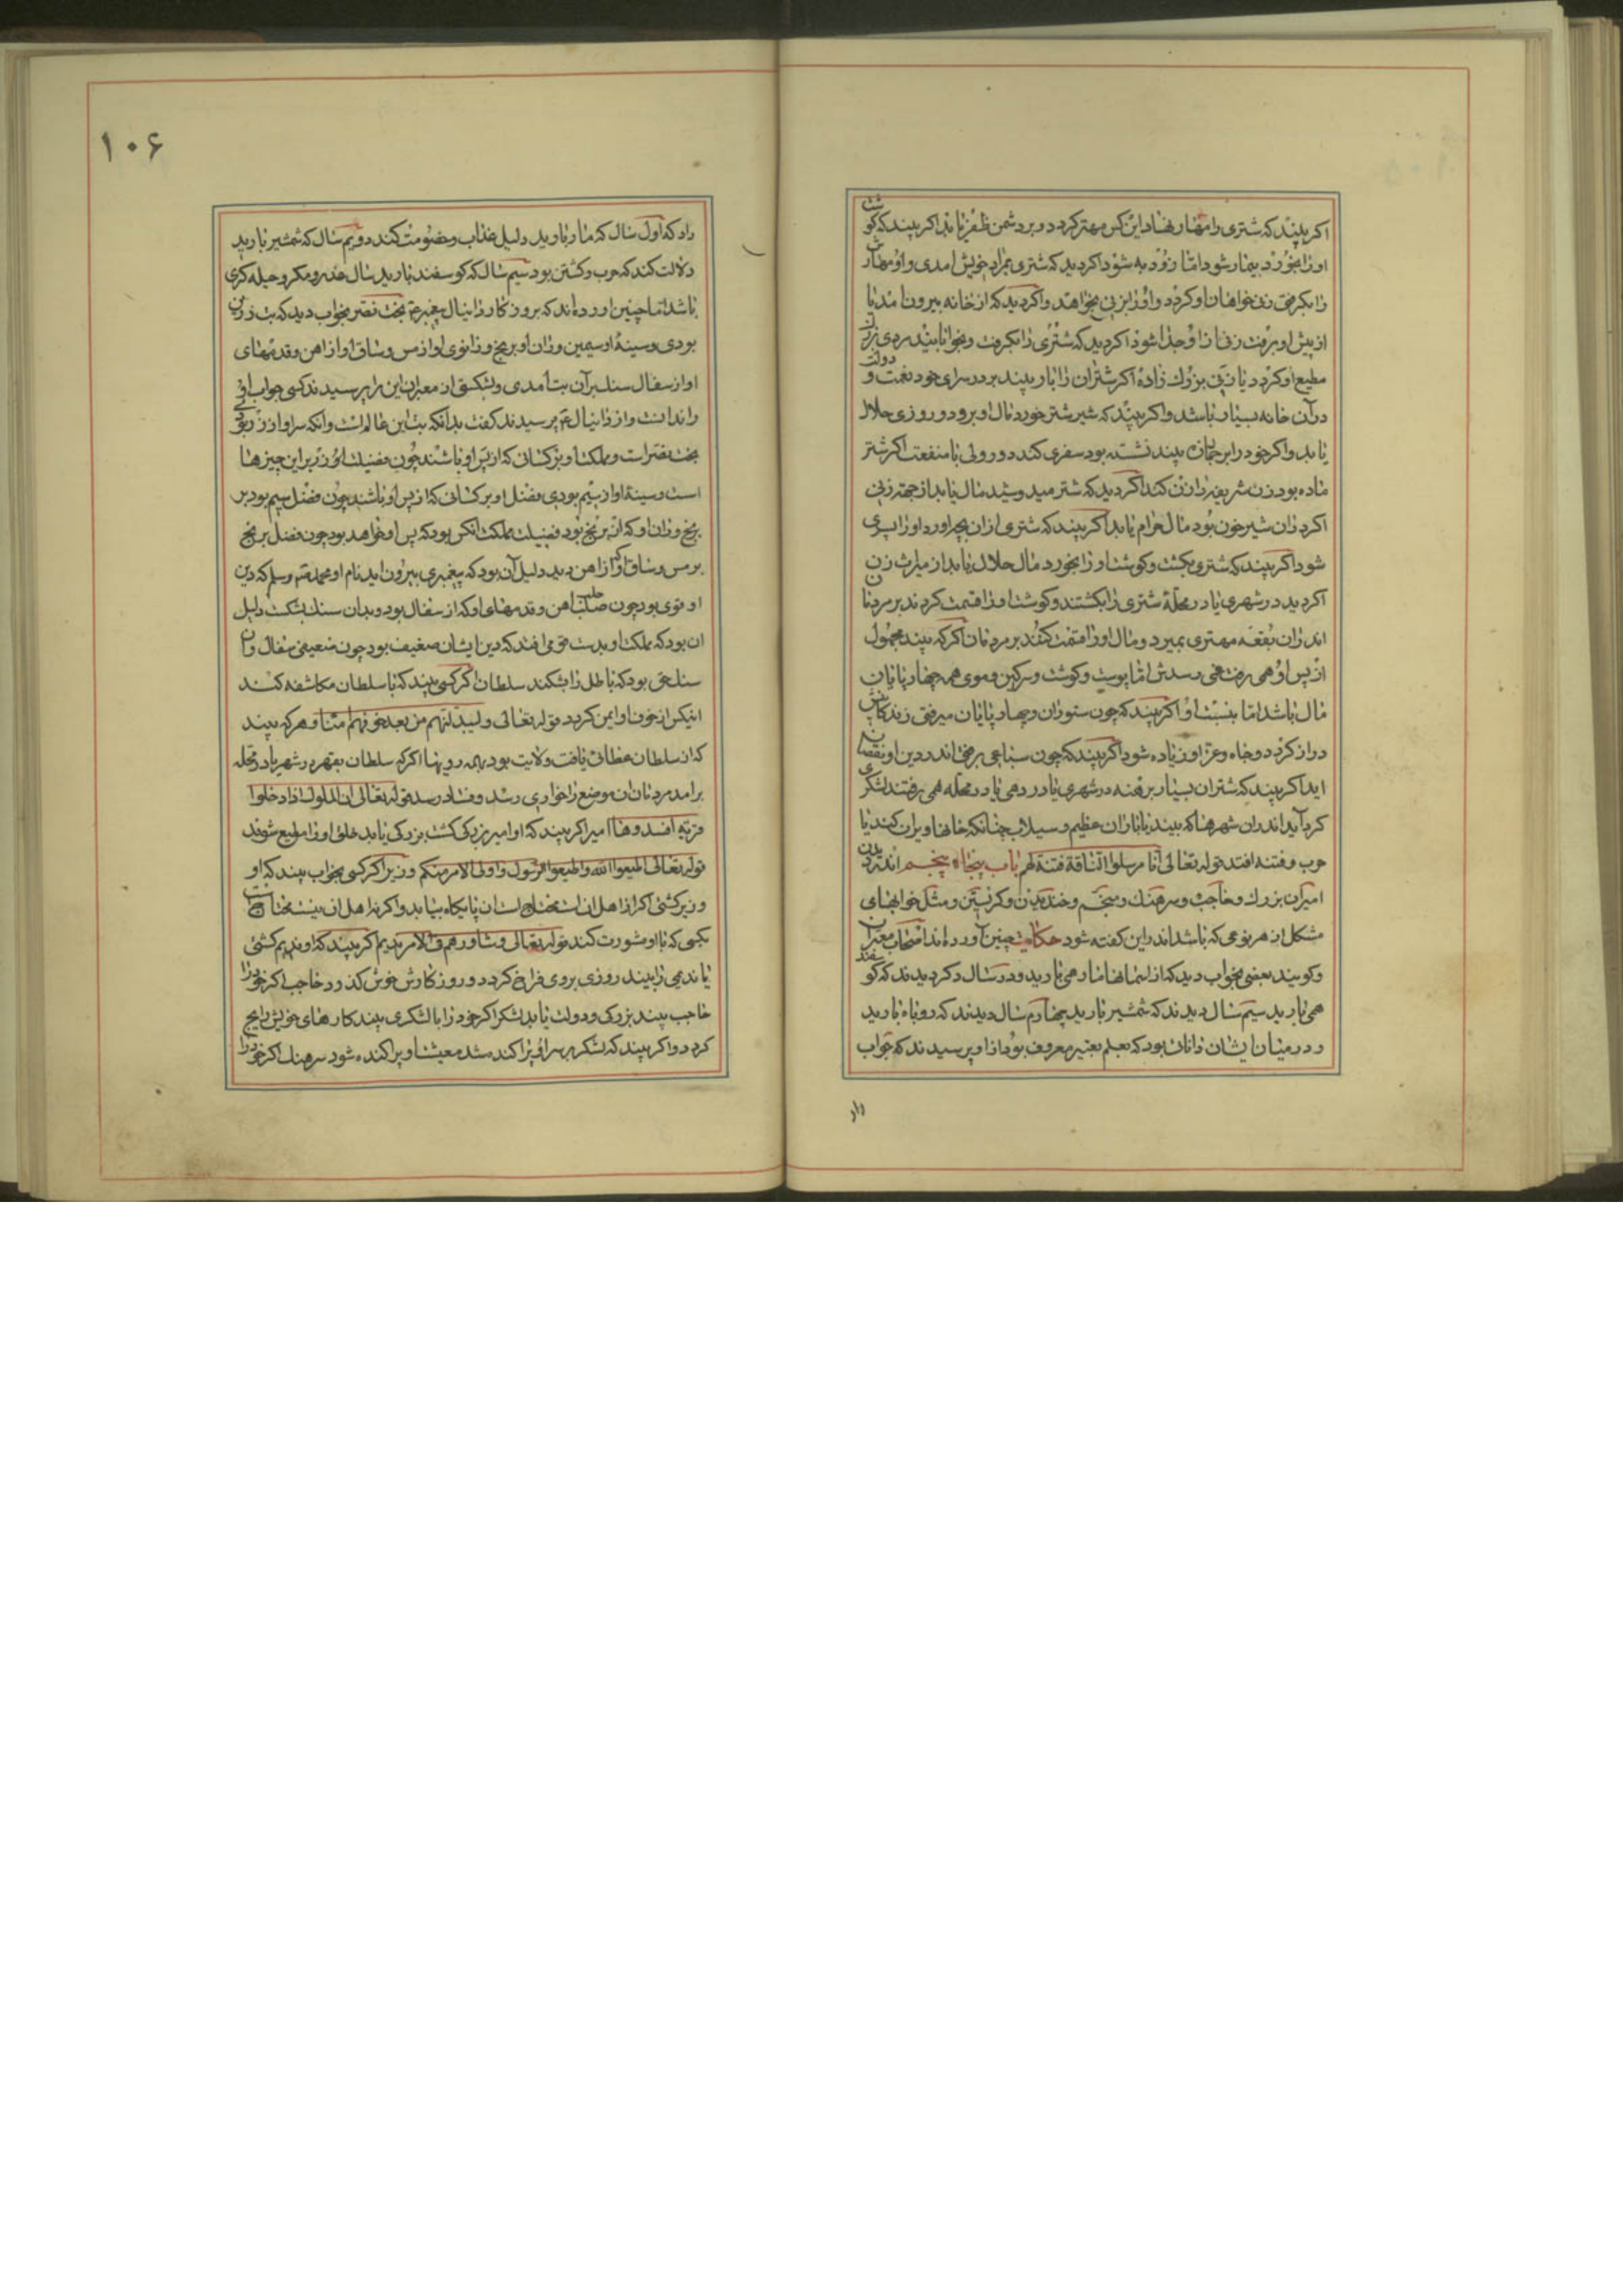 اکر بیند که شتری را مهار نهاد این کس مهتر کردد و بر دشمن ظفر یابد اکر بیند که کوشت
او را بخورد بیمار شود اما زود به شود اکر دید که شتری بمراد خویش امدی و او مهارش
را بکرفتی زنی خواهان او کردد و او را بزنی بخواهد و اکر دید که از خانه بیرون امد یا
از پیش او برفت زنی از او جدا شود اکر دید که شتری را بکرفت و بخوابانید مردی بزرک
مطیع او کردد یا زنی بزرک زاده اکر شتران را با بار بیند بر در سرای خود نعمت و دولت
در آن خانه بسیار باشد و اکر بیند که شیر شتر خورد مال او برود و روزی حلال
یابد و اکر خود را بر جمازه بیند نشسته بود سفری کند دور ولی با منفعت اکر شتر
ماده بود زن شریفه را زن کند اکر دید که شتر میدوشید مال یابد از جهة زنی
اکر از آن شیر خون بود مال حرام یابد اکر بیند که شتری از آن بچه اورد او را پسری
شود اکر بیند که شتری بکشت و کوشت او را بخورد مال حلال یابد از میراث زن
اکر دید در شهری یا در محلهٔ شتری را بکشتند و کوشت او را قسمت کردند بر مردمان
اندران بقعه مهتری بمیرد و مال او را قسمت کنند بر مردمان اکر که بیند مجهول
از پس او همی رفت غمی رسدش اما پوست و کوشت و سرکین و موی همه چهارپایان
مال باشد اما بنسبت او اکر بیند که چون ستوران و چهارپایان میرفتی زندکانیش
دراز کردد و جاه و عز او زیاده شود اکر بیند که چون سباعی برفتی اندر دین او نقصان
اید اکر بیند که شتران بسیار برهنه در شهری یا در دهی یا در محله همی رفتند لشکری
کرد آید اندران شهر هنا که بیند یا باران عظیم و سیلاب چنانکه خانها ویران کند یا
حرب و فتنه افتد قوله تعالی انا مرسلوا الناقة فتنة لهم باب پنجاه پنجم اندر دیدن
امیران بزرک و حاجب و سرهنک و منجم و خندیدن و کریستن و مثل خوابهای
مشکل از هر نوعی که باشد اندر این کفته شود حکایت چنین آورده اند اصحاب معبران
و کویند بعضی بخواب دید که از اسمانها مار همی بارید و در سال دکر دیدند که کوسفند
همی بارید سیم سال دیدند که شمشیر بارید چهارم سال دیدند که روباه بارید
و در میان ایشان دانائی بود که بعلم تعبیر معروف بود از او پرسیدند که جواب
داد
۱۰۶
داد که اول سال که مار بارید دلیل عذاب و خصومت کند دویم سال که شمشیر بارید
دلالت کند که حرب و کشتن بود سیم سال که کوسفند بارید سال غدر و مکر و حیله کری
باشد اما چنین اورده اند که بروزکار دانیال پیغمبر ع بخت نصر بخواب دید که بت زرین
بودی و سینهٔ او سیمین و ران او برنج و زانوی او از مس و ساق او از اهن و قدمهای
او از سفال سنک بر آن بت آمدی و بشکستی از معبران این را پرسیدند کسی جواب
را ندانست و از دانیال ع پرسیدند کفت بدانکه بت این عالمست و آنکه سر او از زر بود
بخت نصر است و ملکت او بر کسانی که از پس او باشند چون فضیلت زر بر این چیزها
است و سینهٔ او از سیم بودی فضل او بر کسانی که از پس او باشند چون فضل سیم بود بر
برنج و ران او که از برنج بود فضیلت مملکت انکس بود که پس او خواهد بود چون فضل برنج
بر مس و ساق او که از اهن دید دلیل آن بود که پیغمبری بیرون اید نام او محمد صم وسلم که دین
او قوی بود چون صلبت اهن و قدمهای او که از سفال بود و بدان سنک بشکست دلیل
ان بود که ملکت او بدست قومی افتد که دین ایشان ضعیف بود چون ضعیفی سفال و ان
سنک حق بود که باطل را بشکند سلطان اکر کسی بیند که با سلطان مکاشفه کند
اینکس از خوف او ایمن کردد قوله تعالی ولیبدلنهم من بعد خوفهم امنا و هر که بیند
که از سلطان عطائی یافت ولایت بود اکر که سلطان بقهر در شهر یا در محله
برامد مردمان ان موضع را خواری رسد و فساد رسد قوله تعالی ان الملوک اذا دخلوا
قریة افسدوها امیر اکر بیند که او امیر بزرکی کشت بزرکی یابد خلق او را مطیع شوند
قوله تعالی اطیعوا الله واطیعوا الرسول واولی الامر منکم وزیر اکر کسی بخواب بیند که او
وزیر کشتی اکر از اهل ان است پایکاه بیابد و اکر نه از اهل ان نیست محتاج
بکسی که با او مشورت کند قوله تعالی وشاورهم فی الامر ندیم اکر بیند که او ندیم کشتی
یا ندیمی را بیند روزی بر وی فراخ کردد و روزکارش خوش کذرد حاجب اکر خود را
حاجب بیند بزرکی و دولت یابد لشکر اکر خود را با لشکری بیند کارهای خویش رایج
کردد و اکر بیند که لشکر بر سر او پراکنده شد معیشت او پراکنده شود سرهنک اکر خود را